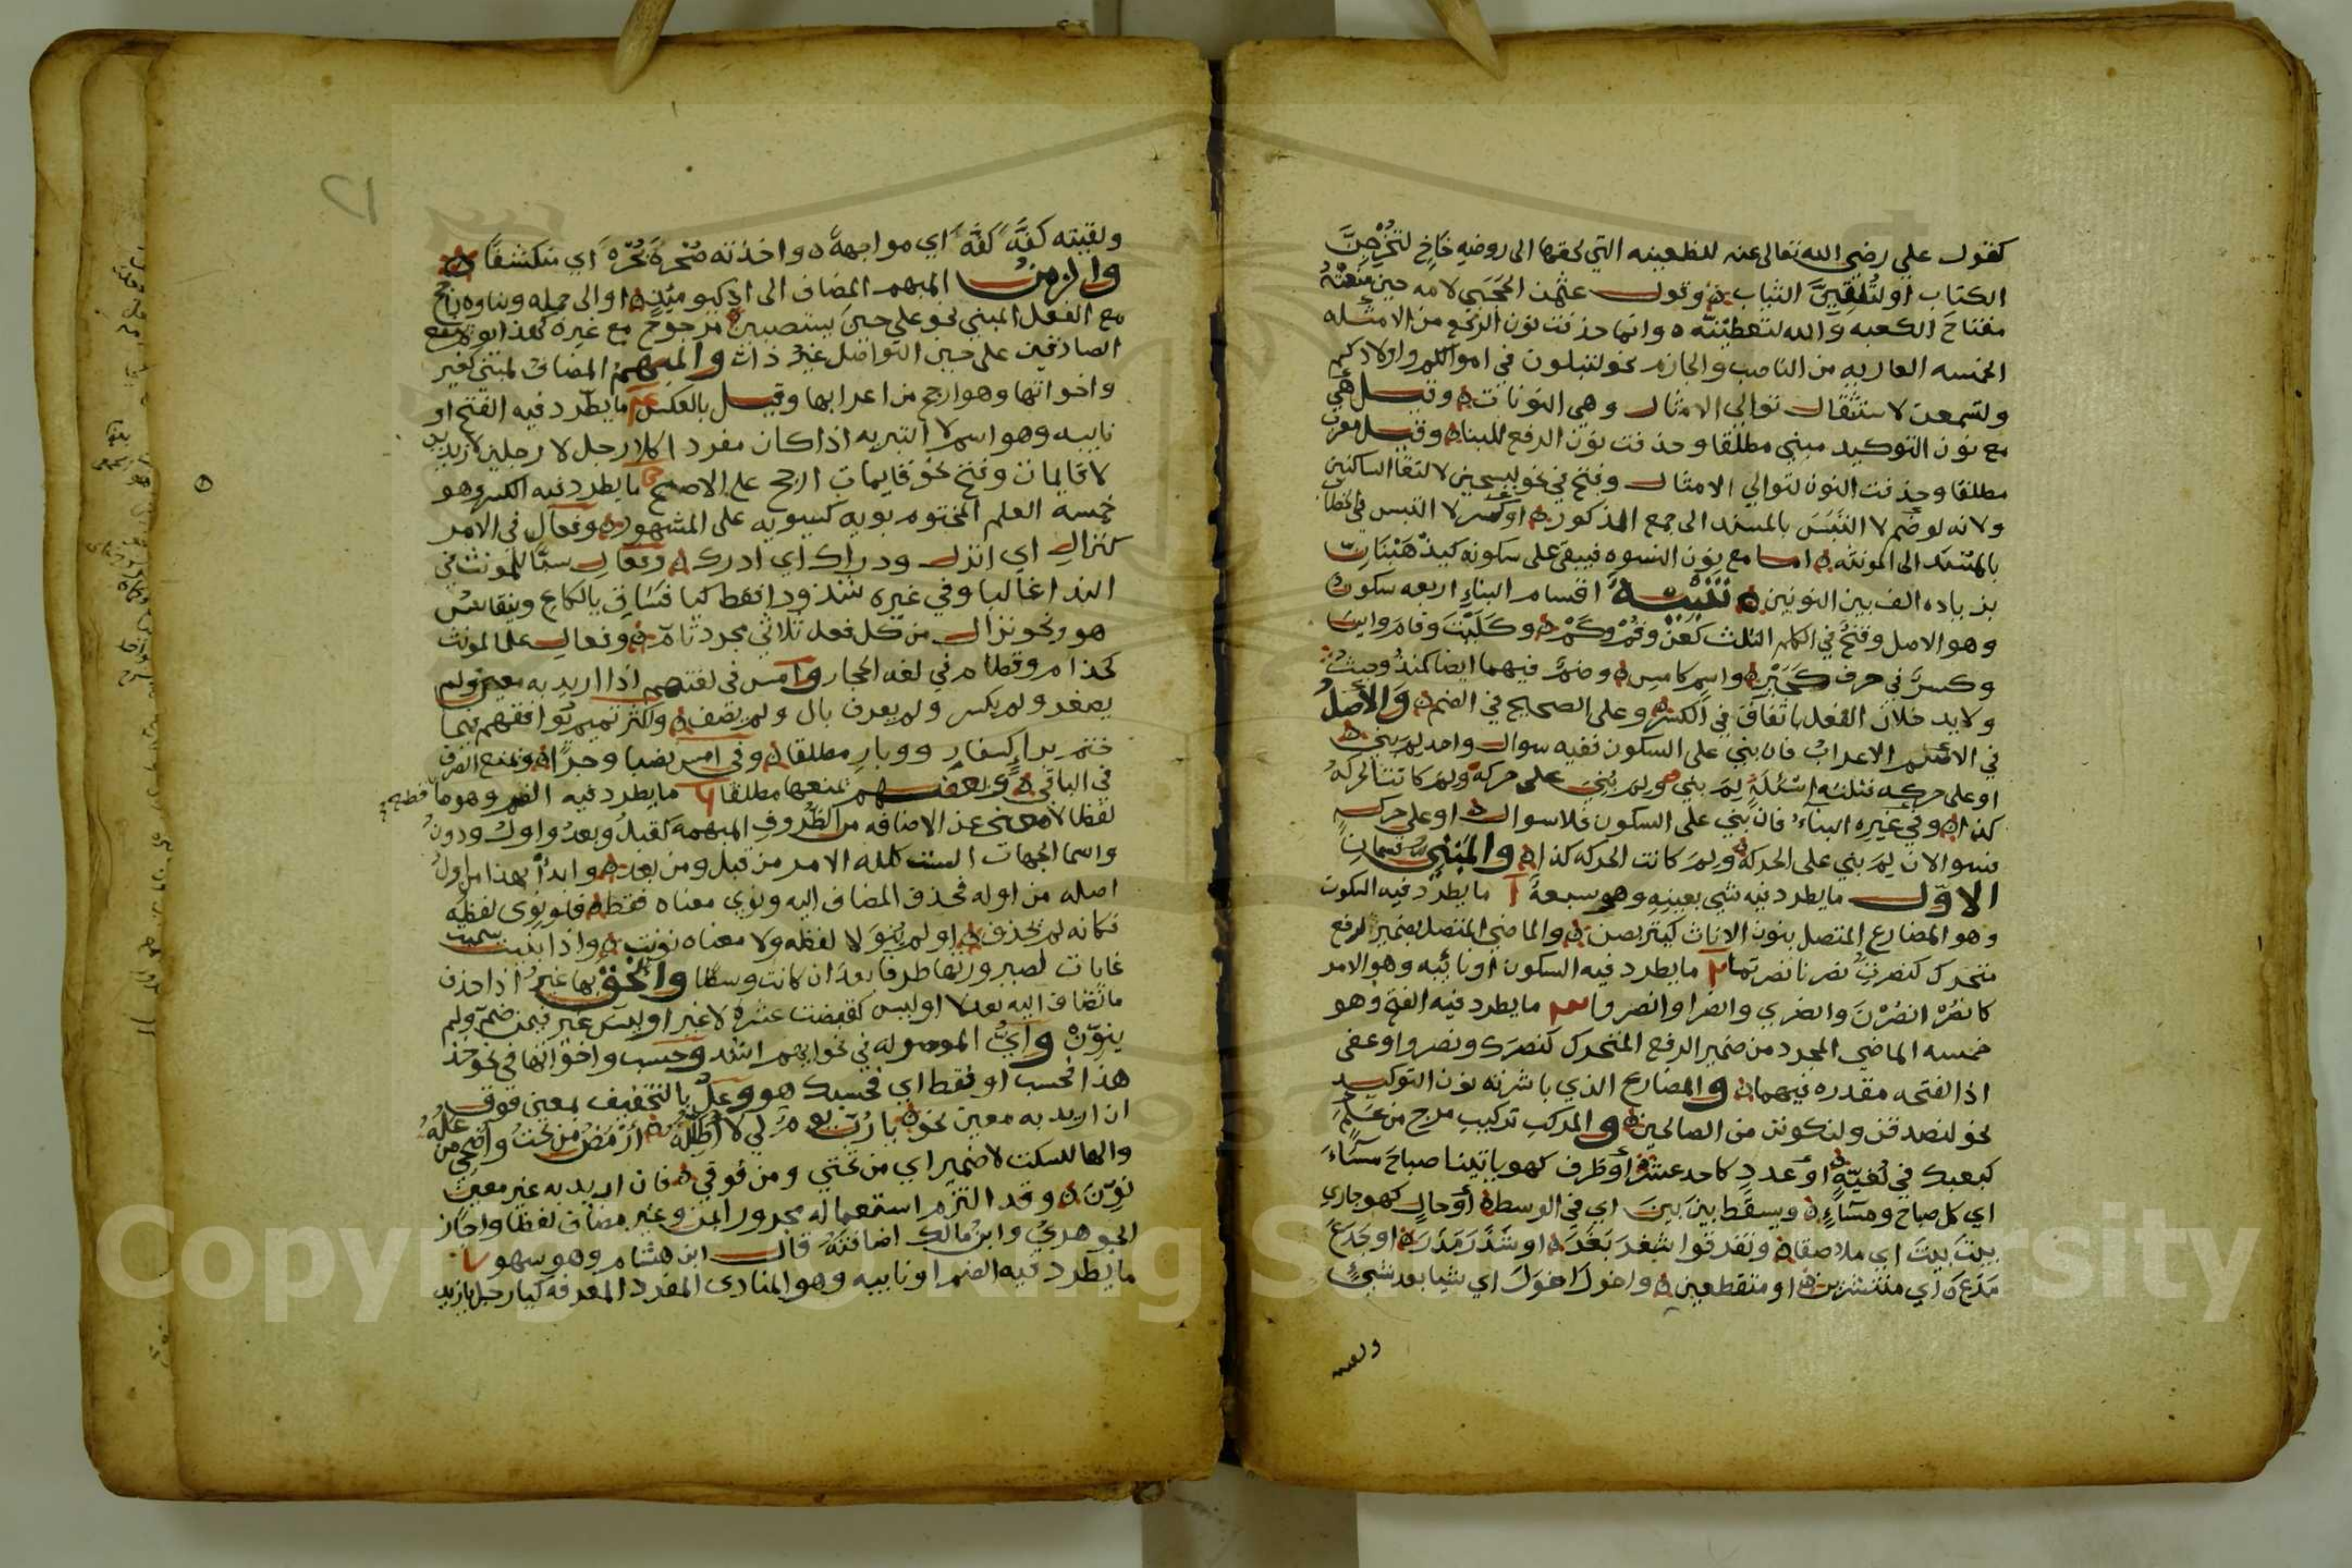 كقول علي رضي الله تعالى عنه للظعينه التي لحقها الى روضه خاخ لتخرجن
الكتاب او لتلقين الثياب وقول عثمن الحجبي لامه حين منعته
مفتاح الكعبه والله لتعطينه وانما حذفت نون الرفع من الامثله
الخمسه العاريه من الناصب والجازم نحو لتبلون في اموالكم واولادكم
ولتسمعن لاستثقال توالي الامثال وهي النونات وقيل هي
مع نون التوكيد مبني مطلقا وحذفت نون الرفع للبناء وقيل معرب
مطلقا وحذفت النون لتوالي الامثال وفتح في نحو ليسجنن لالتقا الساكنين
ولانه لو ضم لا التبس بالمسند الى جمع المذكور او كسر لا التبس في الخطاب
بالمسند الى المونثه اما مع نون النسوه فيبقى على سكونه كيذهبنان
بزياده الف بين النونين تنبيه اقسام البناء اربعه سكون
وهو الاصل وفتح في الكلم الثلث كعن وقم وكم وكليت وقام واين
وكسر في حرف كجير واسم كامس وضم فيهما ايضا كمنذ وحيث
ولا يدخلان الفعل باتفاق في الكسر وعلى الصحيح في الضم والاصل
في الاسم الاعراب فان بني على السكون ففيه سوال واحد لم بني
او على حركه فثلثه اسئله لم بني ولم بني على حركه ولم كانت الحركه
كذا وفي غيره البناء فان بني على السكون فلا سوال او على حركه
فسوالان لم بني على الحركه ولم كانت الحركه كذا والمبني قسمان
الاول ما يطرد فيه شي بعينه وهو سبعة آ ما يطرد فيه السكون
وهو المضارع المتصل بنون الاناث كيتربصن والماضي المتصل بضمير لرفع
متحرك كنصرت نصرنا نصرتما ٢ ما يطرد فيه السكون او نائبه وهو الامر
كانصر انصرن وانصري وانصرا وانصروا ٣ ما يطرد فيه الفتح وهو
خمسه الماضي المجرد من ضمير الرفع المتحرك كنصرك ونصروا وعفى
اذ الفتحه مقدره فيهما والمضارع الذي باشرته نون التوكيد
نحو لنصدقن ولنكونن من الصالحين والمركب تركيب مزج من علم
كبعبك في لغيه او عدد كاحد عشر او ظرف كهو ياتينا صباح مساء
اي كل صباح ومساء ويسقط بين بين اي في الوسط او حال كهو جاري
بيت بيت اي ملاصقا وتفرقوا شغر بغر او شذر مذر او جذع
مذع اي منتشرين او متقطعين واخول اخول اي شيا بعد شي
ولقيته
ولقيته كفه كفه اي مواجهة واخذته صحرة بحرة اي منكشفا
والزمن المبهم المضاف الى اذ كيوميذ او الى جمله وبناوه راجح
مع الفعل المبني نحو على حين يستصبين مرجوح مع غيره كهذا يوم ينفع
الصادقين على حين التواصل غير دان والمبهم المضاف لمبني كغير
واخواتها وهو ارجح من اعرابها وقيل بالعكس ما يطرد فيه الفتح او
نايبه وهو اسم لا التبريه اذا كان مفردا كلا رجل لا رجلين لا زيدين
لا قايمات وفتح نحو قايمات ارجح على الاصح ما يطرد فيه الكسر وهو
خمسه العلم المختوم بويه كسيبويه على المشهور وفعال في الامر
كنزال اي انزل ودراك اي ادرك وفعال سبا للمونث في
الندا غالبا وفي غيره شذوذا فقط كيا فساق يالكاع وينقاس
هو ونحو نزال من كل فعل ثلاثي مجرد تام وفعال علما لمونث
كحذام وقطام في لغه الحجاز وامس في لغتهم اذا اريد به معين ولم
يصغر ولم يكسر ولم يعرف بال ولم يضف واكثر تميم توافقهم فيما
ختم براء كسفار ووبار مطلقا وفي امس نصبا وجرا ومنع الصرف
في الباقي وبعضهم يمنعها مطلقا ما يطرد فيه الضم وهو ما قطع
لفظا لا معنى عن الاضافه من الظروف المبهمه كقبل وبعد واول ودون
واسما الجهات الست لله الامر من قبل ومن بعد وابدأ بهذا من اول
اصله من اوله فحذف المضاف اليه ونوي معناه فقط فلو نوى لفظه
فكانه لم يحذف او لم ينو لا لفظه ولا معناه نونت واذا بنيت سميت
غايات لصيرورتها طرفا بعد ان كانت وسطا والحق بها غير اذا حذف
ما تضاف اليه بعد لا او ليس كقبضت عشرة لا غير او ليس غير فيمن ضم ولم
ينون واي الموصوله في نحو ايهم اشد وحسب واخواتها في نحو خذ
هذا فحسب او فقط اي فحسبك هو وعل بالتخفيف بمعنى فوق
ان اريد به معين نحو يا رب يوم لي لا اظلله ارمض من تحت واضحى من عله
والها للسكت لا ضمير اي من تحتي ومن فوقي فان اريد به غير معين
نون وقد التزم استعماله مجرورا بمن وغير مضاف لفظا واجاز
الجوهري وابن مالك اضافته قال ابن هشام وهو سهو
ما يطرد فيه الضم او نايبه وهو المنادى المفرد المعرفه كيا رجل يا زيد